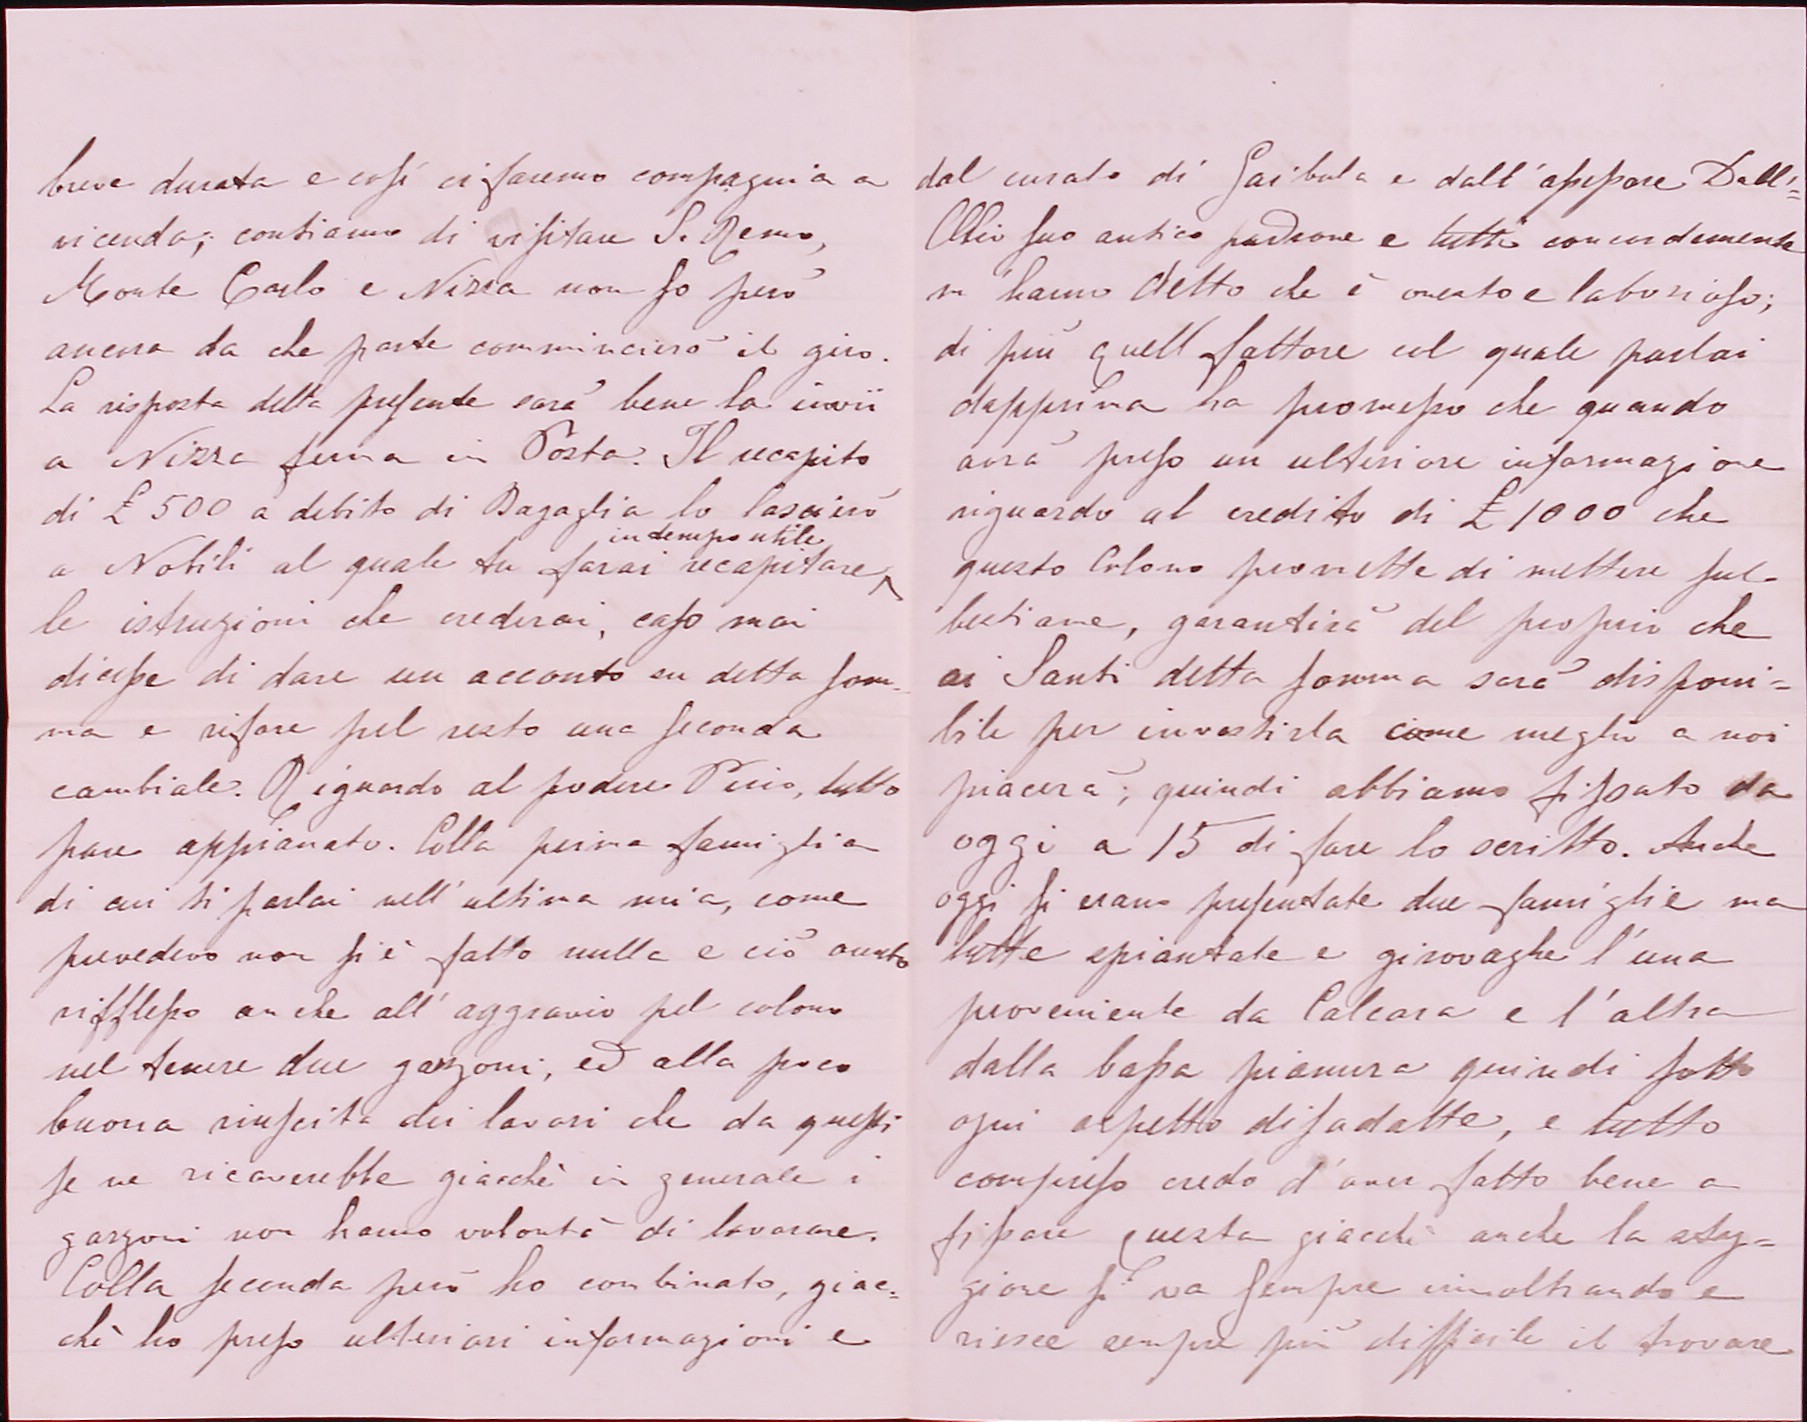 breve durata e così ci faremo compagnia a
vicenda; contiamo di visitare S. Remo,
Monte Carlo e Nizza non so però
ancora da che parte commincierò il giro.
La risposta della presente sarà bene la invii
a Nizza ferma in Posta. Il recapito
di £ 500 a debito di Bagaglia lo lascierò
in tempo utile
a Nobili al quale tu farai recapitare
le istruzioni che crederai, caso mai
dicesse di dare un acconto su detta som-
ma e rifare pel resto una seconda
cambiale. Riguardo al podere Pirio, tutto
pare appianato. Colla prima famiglia
di cui ti parlai nell'ultima mia, come
prevedevo non si è fatto nulla e ciò avuto
rifflesso anche all'aggravio pel colono
nel tenere due garzoni, ed alla poco
buona riuscita dei lavori che da questi
se ne ricaverebbe giacchè in generale i
garzoni non hanno volontà di lavorare.
Colla seconda però ho combinato, giac-
chè ho preso ulteriori informazioni e
dal curato di Gaibola e dall'assessore Dall'=
Ollio suo antico padrone e tutti concordemente
m'hanno detto che è onesto e laborioso;
di più quell fattore col quale parlai
dapprima ha promesso che quando
avrà preso un ulteriore informazione
riguardo al credito di £ 1000 che
questo Colono promette di mettere sul
bestiame, garantirà del proprio che
ai Santi detta somma sarà disponi=
bile per investirla come meglio a noi
piacerà; quindi abbiamo fissato da
oggi a 15 di fare lo scritto. Anche
oggi si erano presentate due famiglie ma
tutte spiantate e girovaghe l'una
proveniente da Calcara e l'altra
dalla bassa pianura quindi sotto
ogni aspetto disadatte, e tutto
compreso credo d'aver fatto bene a
fissare questa giacchè anche la stag=
gione si va sempre innoltrando e
riesce sempre più difficile il trovare